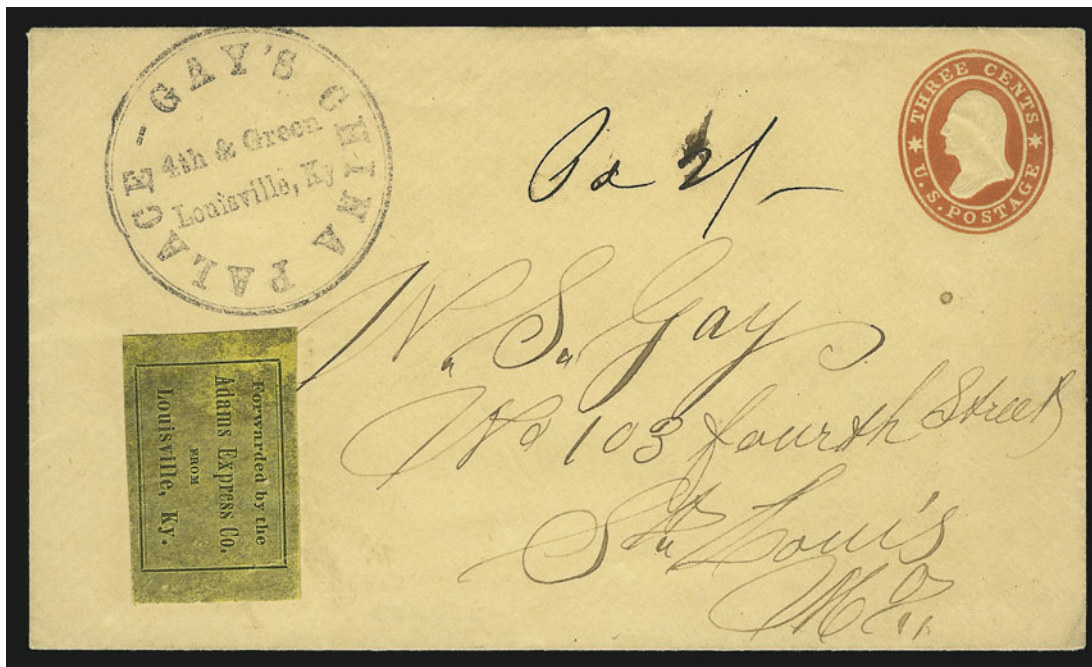 PALACE - GAY'S CHINA
4th & Green
Louisville, Ky
THREE CENTS
U.S. POSTAGE
Pd 2/-
W. S. Gay
No 103 fourth Street
St. Louis
Mo.
Forwarded by the
Adams Express Co.
FROM
Louisville, Ky.